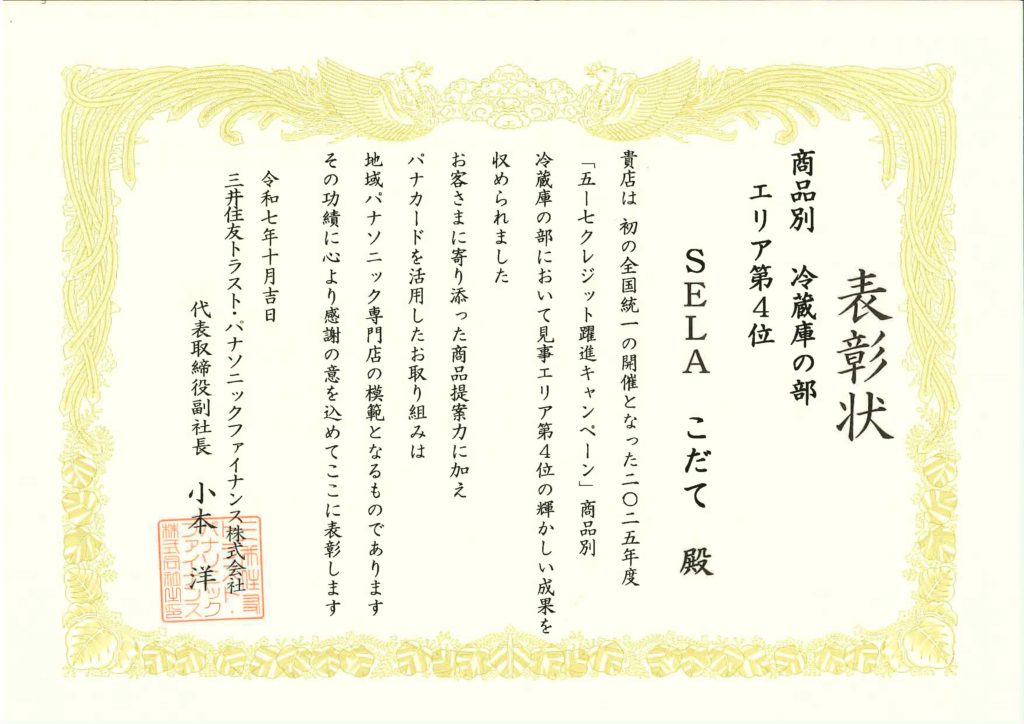 表彰状
商品別　冷蔵庫の部
エリア第4位
SELA　こだて　殿
貴店は 初の全国統一の開催となった二〇二五年度
「五ー七クレジット躍進キャンペーン」商品別
冷蔵庫の部において見事エリア第4位の輝かしい成果を
収められました
お客さまに寄り添った商品提案力に加え
パナカードを活用したお取り組みは
地域パナソニック専門店の模範となるものであります
その功績に心より感謝の意を込めてここに表彰します
令和七年十月吉日
三井住友トラスト・パナソニックファイナンス株式会社
代表取締役副社長　小本　洋